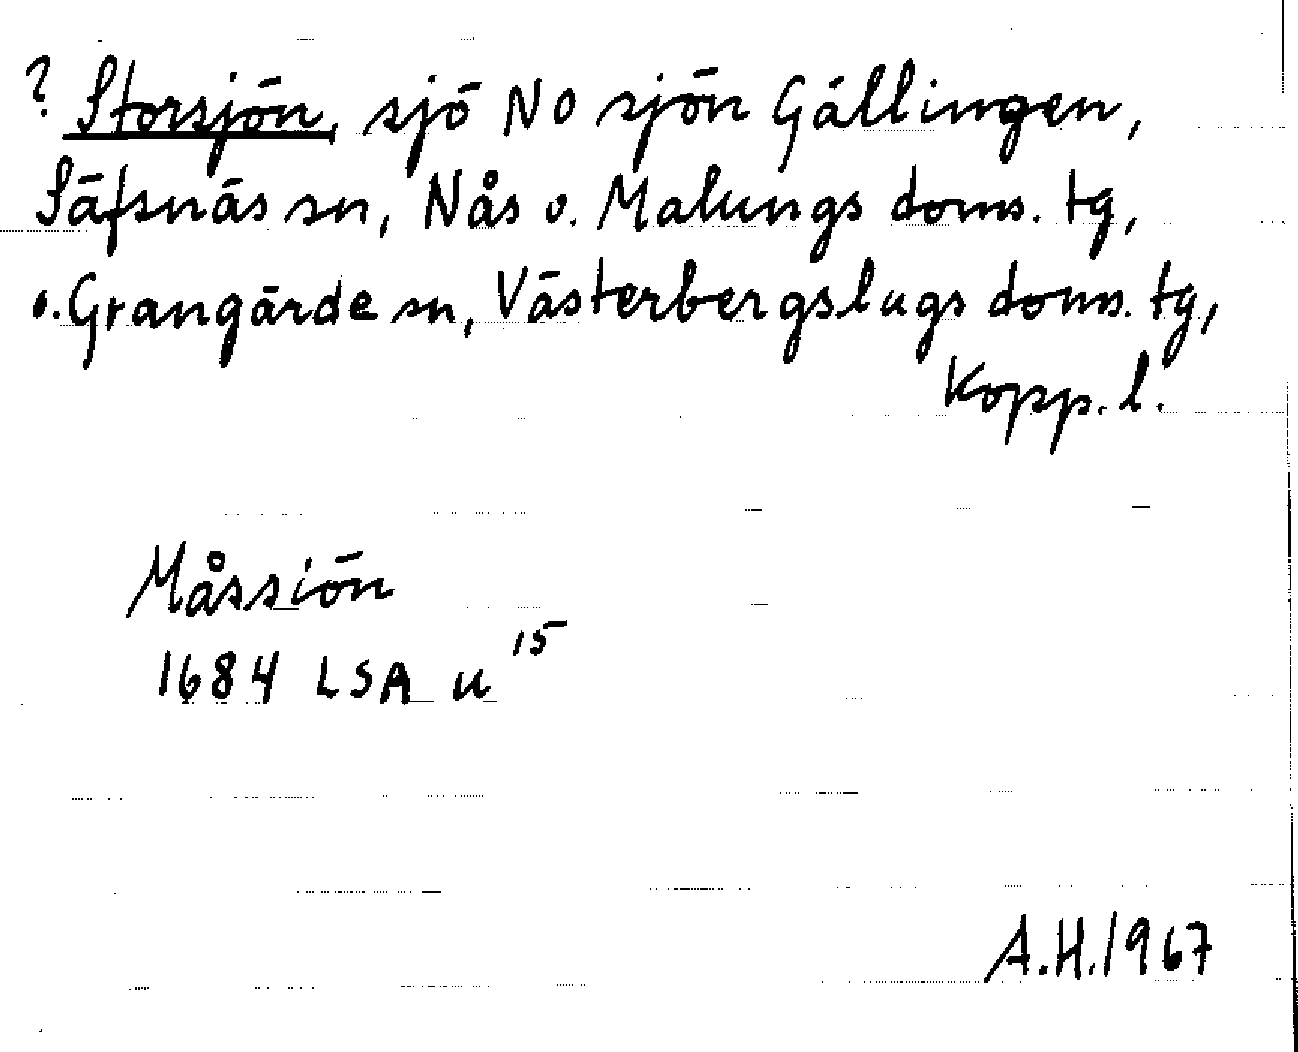 ? Storsjön, sjö NO sjön Gällingen,
Säfsnäs sn, Nås o. Malungs doms. tg,
o. Grangärde sn, Västerbergslags doms. tg,
Kopp. l.
Måssiön
1684 LSA u 15
A.H. 1967